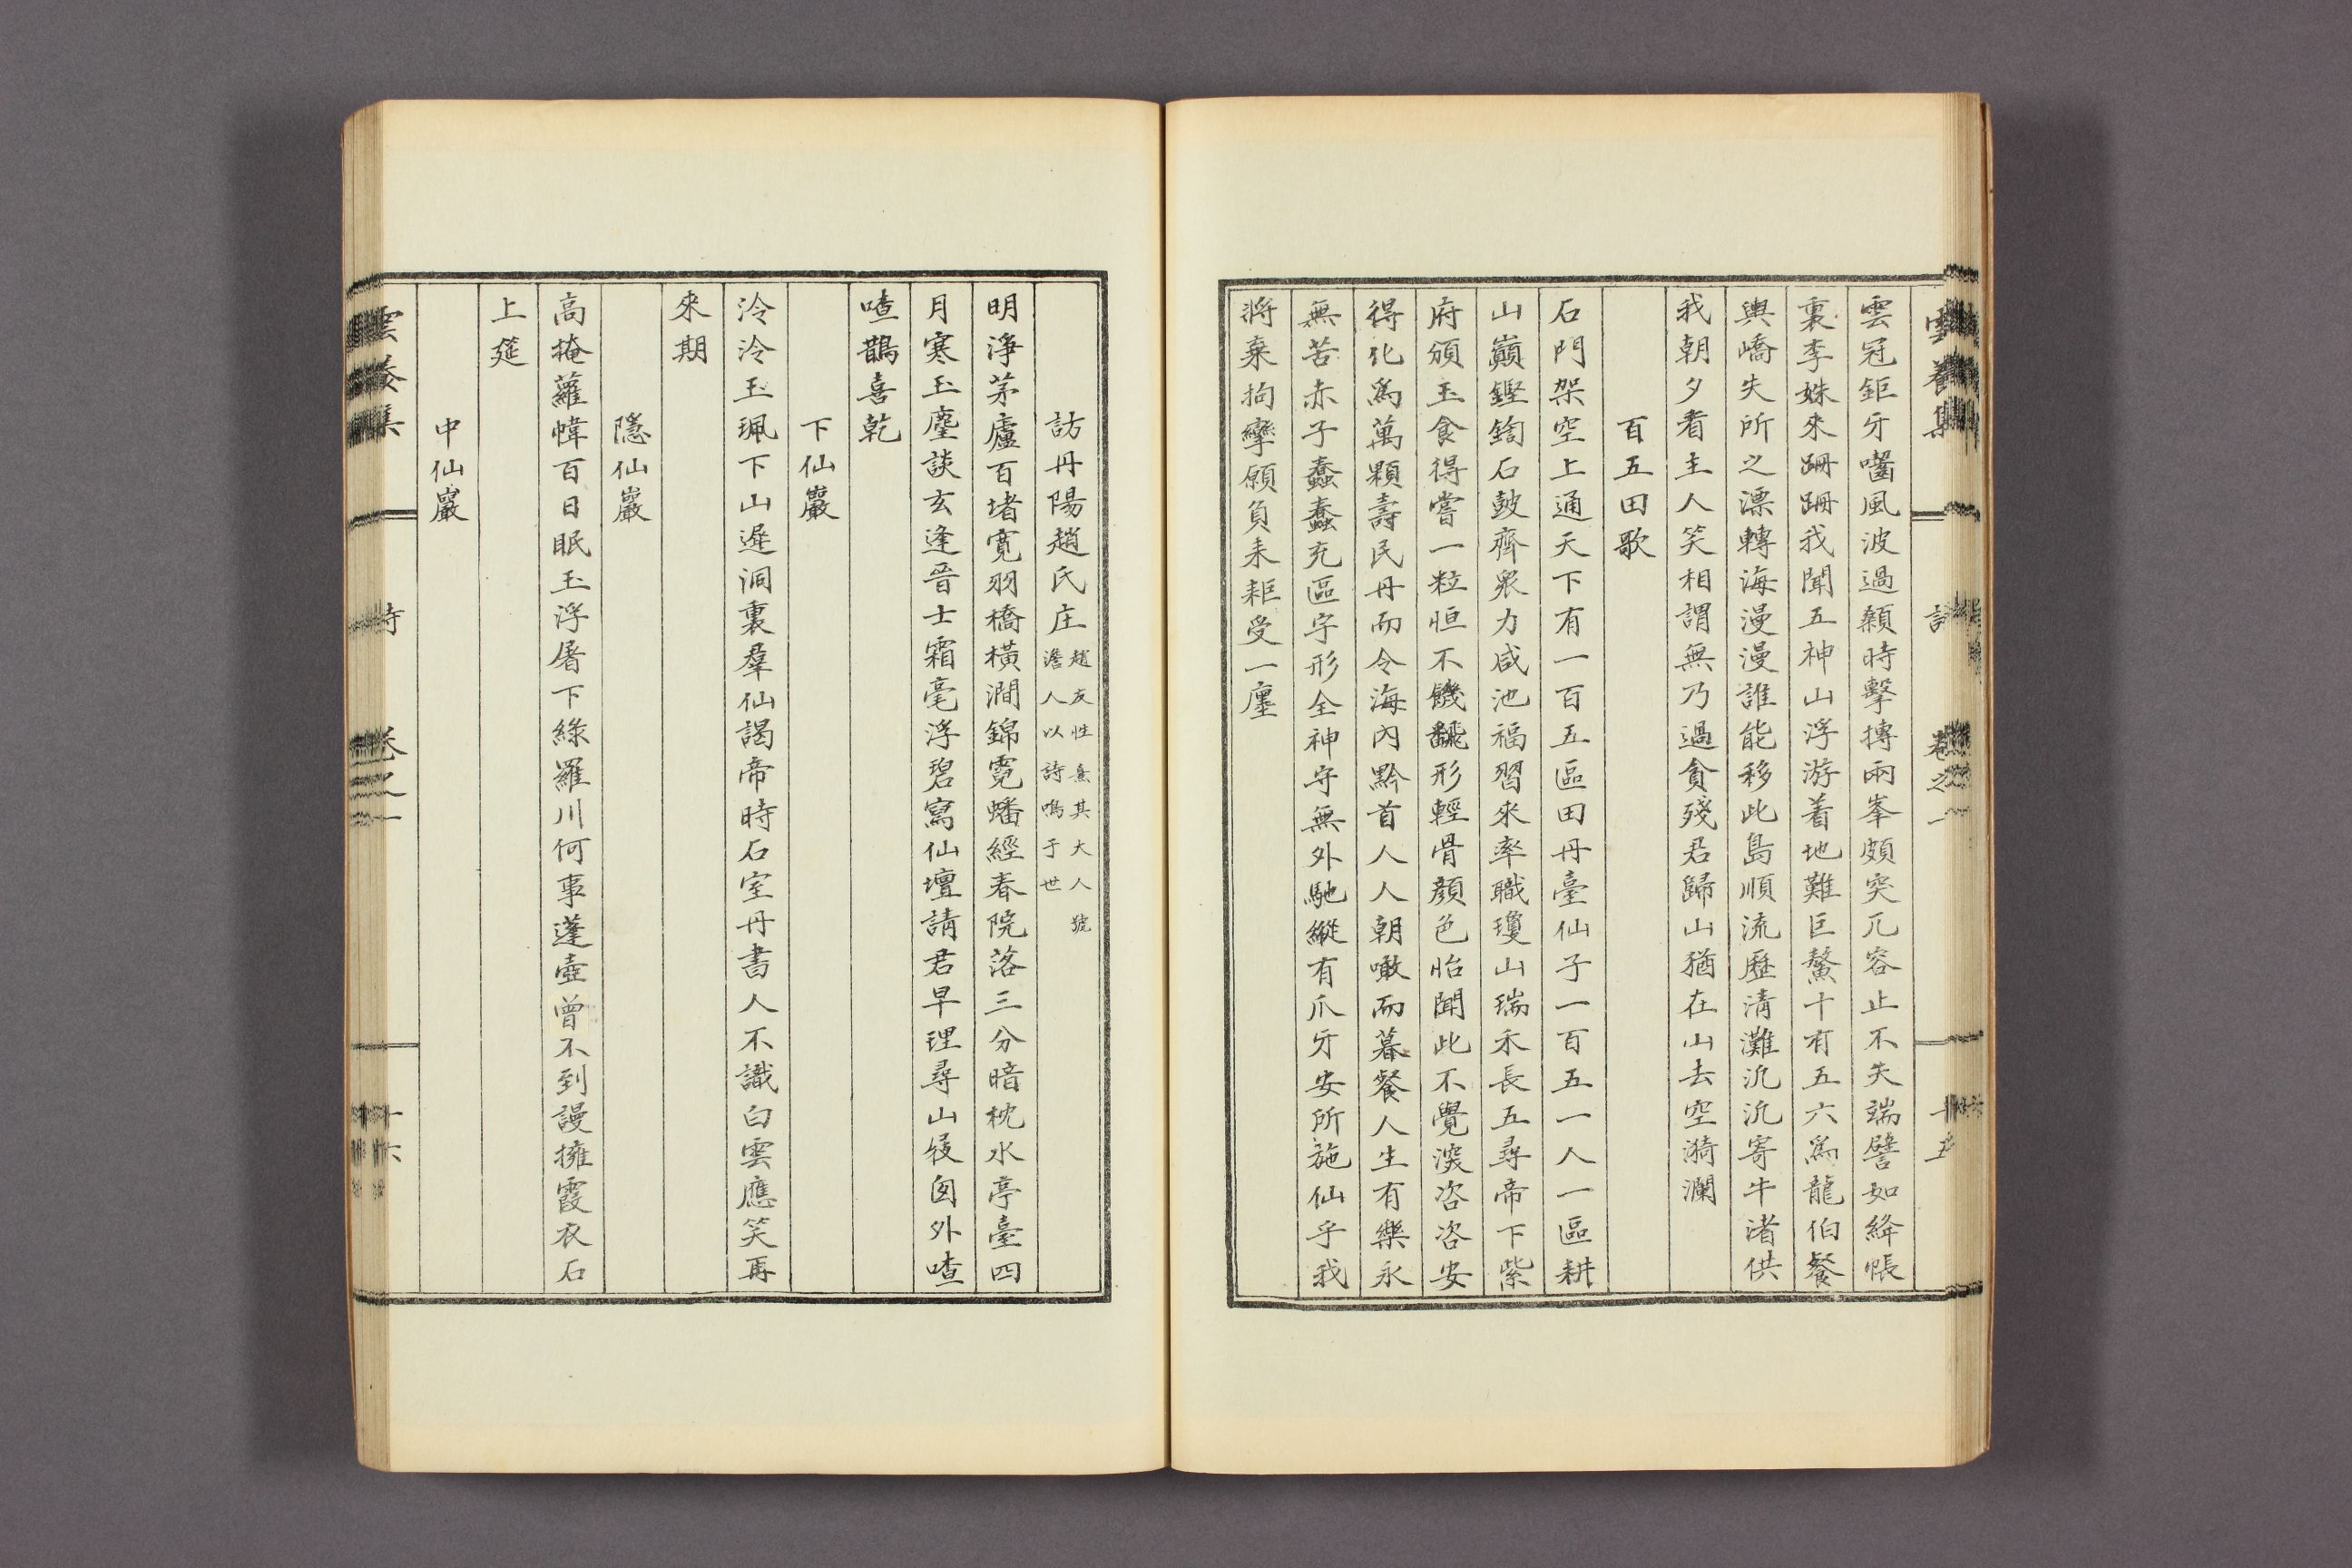 雲養集 詩 卷之一 十五
雲冠鉅牙囓風波過顙時擊搏兩峯頗突兀容止不失端譬如絳帳
裏李姝來跚跚我聞五神山浮游着地難巨鰲十有五六爲龍伯餐
輿嶠失所之漂轉海漫漫誰能移此島順流歷淸灘汎汎寄牛渚供
我朝夕看主人笑相謂無乃過貪殘君歸山猶在山去空漪瀾
百五田歌
石門架空上通天下有一百五區田丹臺仙子一百五一人一區耕
山巓鏗鍧石鼓齊衆力咸池福習來率職瓊山瑞禾長五尋帝下紫
府頒玉食得嘗一粒恒不饑飜形輕骨顏色怡聞此不覺淚咨咨安
得化爲萬顆壽民丹而令海內黔首人人朝噉而暮餐人生有樂永
無苦赤子蠢蠢充區宇形全神守無外馳縱有爪牙安所施仙乎我
將棄拘攣願負耒耟受一廛
訪丹陽趙氏庄 趙友性熹其大人號
澹人以詩鳴于世
明淨茅廬百堵寬羽橋橫澗錦霓蟠經春院落三分暗枕水亭臺四
月寒玉麈談玄逢晉士霜毫浮碧寫仙壇請君早理尋山屐囱外喳
喳鵲喜乾
下仙巖
泠泠玉珮下山遲洞裏羣仙謁帝時石室丹書人不識白雲應笑再
來期
隱仙巖
高掩蘿幃百日眠玉浮屠下綠羅川何事蓬壺曾不到謾擁霞衣石
上筵
中仙巖
雲養集 詩 卷之一 十六